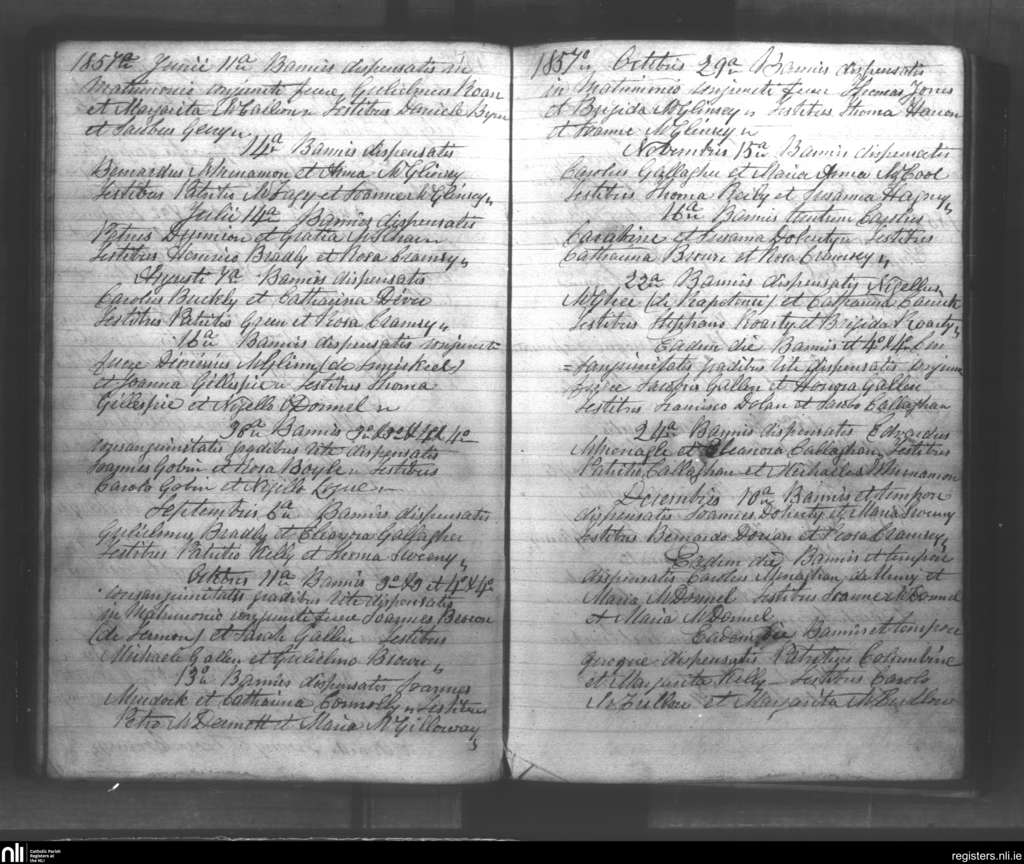 1857 a Junii 11a Bannis dispensatis in
Matrimonio conjuncti fuere, Gulielmus Roan
et Margarita McCalloun Testibus Daniele Byrn
et Jacobus
14a Bannis dispensatis
Bernardus McMenamon et Anna McGlinsey
Testibus Patritio et Joanne McGlinsey
Julii 14a Bannis dispensatis
Petrus et Gratia
Testibus Henrico Bradly et Rosa Cramsey
Augusti 4a Bannis dispensatis
Carolus Buckly et Catharina
Testibus Patritio Green et Rosa Cramsey
16a Bannis dispensatis conjuncti
fuere Dionisius McGlinn (de
et Joanna Gillespie Testibus Thoma
Gillespie et Nigello O'Donnel
30a Bannis 3o & 3o & 4o & 4o
consanguinitatis gradibus rite dispensatis
Joannes Gobin et Rosa Boyle Testibus
Carolo Gobin et Nigillo Logue
Septembris 6a Bannis dispensatis
Gulielmus Bradly et Eleanora Gallagher
Testibus Patritio Kelly et Sweeny
Octobris 11a Bannis 3o & 3o et 4o & 4o
consanguinitatis gradibus rite dispensatis
in Matrimonio conjuncti fuere Joannes Brown
(de Termon) et Sarah Gallen Testibus
Michaele Gallen et Gulielmo Brown
13a Bannis dispensatis Joannes
Murdock et Catharina Connolly Testibus
Petro McDermott et Maria McGilloway
1857 Octobris 29a Bannis dispensatis
in Matrimonio conjuncti fuere Thomas Jones
et Brigida McGlinsey Testibus Thoma Hanon
et Joanne McGlinsey
Novembris 15a Bannis dispensatis
Carolus Gallagher et Maria Anna McCool
Testibus Thoma Reily et Susanna
16a Bannis Carolus
Carabine et Susanna Doherty Testibus
Catharina Browne et Rosa Cramsey
22a Bannis dispensatis Nigellus
McGhee (de et Catharina
Testibus Stephano Roarty et Brigida Roarty
Eadem die Bannis et 4o & 4o con
=sanguinitatis gradibus rite dispensatis conjuncti
fuere Jacobus Gallen et Honora Gallen
Testibus Francisco Dolan et Jacobo Callaghan
24a Bannis dispensatis Edvardus
McMenagle et Eleanora Callaghan Testibus
Patritio Callaghan et Michaelas McMenamon
Decembris 10a Bannis et tempore
dispensatis Joannes Doherty et Maria Sweeny
Testibus Bernardo et Rosa Cramsey
Eadem die Bannis et tempore
dispensatis Carolus Monaghan de Urney et
Maria McDonnel Testibus Joanne McDonnel
et Maria McDonnel
Eadem die Bannis et tempore
quoque dispensatis Patritius Columbine
et Margarita Kelly — Testibus Carolo
et Margarita
nli
Catholic Parish
Registers at
the NLI
registers.nli.ie